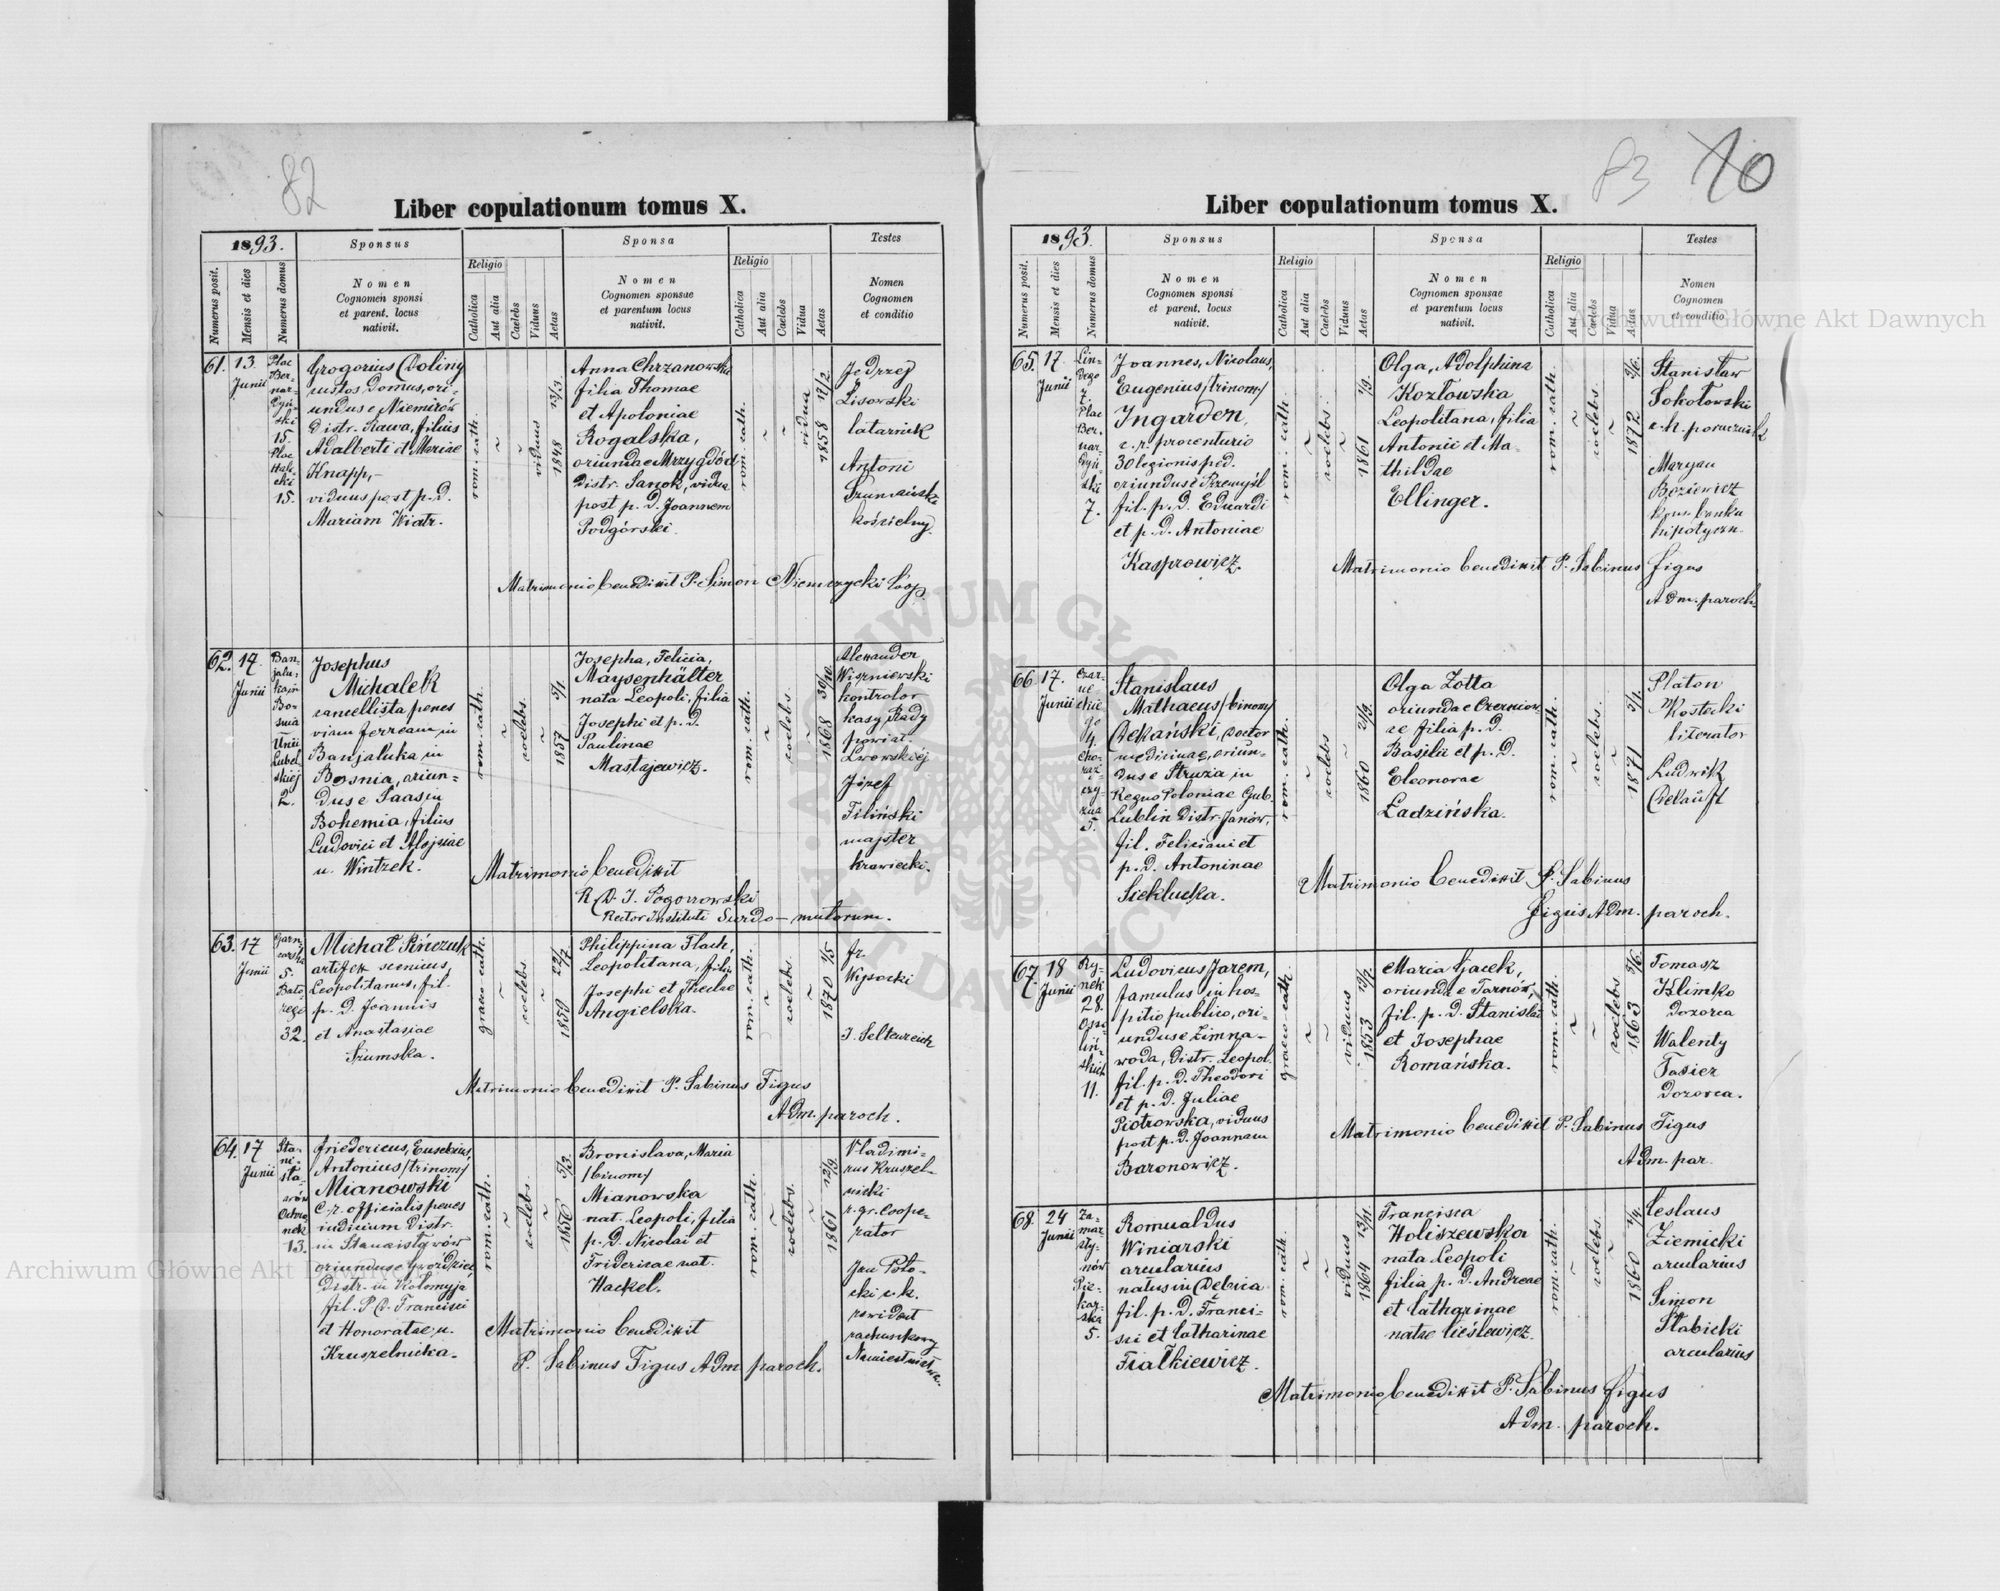 82
Liber copulationum tomus X.
1893.
Sponsus
Sponsa
Testes
Numerus posit.
Mensis et dies
Numerus domus
Nomen
Cognomen sponsi
et parent. locus
nativit.
Religio
Catholica
Aut alia
Caelebs
Viduus
Aetas
Nomen
Cognomen sponsae
et parentum locus
nativit.
Religio
Catholica
Aut alia
Caelebs
Vidua
Aetas
Nomen
Cognomen
et conditio
61. 13.
Junii
Plac
Ber-
nar-
dyń-
ski
15.
Plac
Hali-
cki
15.
Gregorius Doliny
custos domus, ori-
undus e Niemirów
Distr. Rawa, filius
Adalberti et Mariae
Knapp,-
viduus post p. d.
Mariam Wiatr.
rom. cath.
viduus
1848 13/3
Anna Chrzanowska
filia Thomae
et Apoloniae
Rogalska,
oriundae Mrzygłód
Distr. Sanok, vidua
post p. d. Joannem
Podgórski.
rom. cath.
vidua
1858 11/2
Jędrzej
Lisowski
latarnik
Antoni
Szumański
kościelny.
Matrimonio benedixit P. Simon Niemczycki Coop.
62. 17.
Junii
Ban-
jalu-
ka in
Bo-
snia
Unii
Lubel-
skiej
2.
Josephus
Michalek
cancellista penes
viam ferream in
Banjaluka in
Bosnia, oriun-
dus e Saas in
Bohemia, filius
Ludovici et Alojsiae
n. Wintzek.
rom. cath.
coelebs.
1857 5/1
Josepha, Felicia,
Maysenhälter
nata Leopoli, filia
Josephi et p. d.
Paulinae
Mastajewicz.
rom. cath.
coelebs.
1868 30/10
Alexander
Wiszniewski
kontrolor
kasy Rady
powiat.
Lwowskiej
Józef
Filiński
majster
krawiecki.
Matrimonio benedixit
R. D. J. Pogorzowski
Rector Instituti Surdo-mutorum.
63. 17
Junii
Garn-
carska
5.
Bato-
rego
32.
Michał Pińczuk
artifex scenicus,
Leopolitanus, fil.
p. d. Joannis
et Anastasiae
Szumska.
graeco cath.
coelebs.
1859 22/7
Philippina Flach,
Leopolitana, filia
Josephi et Theclae
Angielska.
rom. cath.
coelebs.
1870 1/5
Fr.
Wysocki
J. Seltenreich
Matrimonio benedixit P. Sabinus Figus
Adm. paroch.
64. 17
Junii
Sta-
ni-
sła-
wów
13.
Friedericus, Eusebius,
Antonius /trinom/
Mianowski
c. r. officialis penes
iudicium Distr.
in Stanisławów
oriundus e Gwoździec
Distr. in Kołomyja
fil. P. D. Francisci
et Honoratae, n.
Kruszelnicka.
rom. cath.
coelebs.
1856 5/3
Bronislava, Maria
/binom/
Mianowska
nat. Leopoli, filia
p. d. Nicolai et
Fridericae nat.
Hackel.
rom. cath.
coelebs.
1861 12/9
Vladimi-
rus Kruszel-
nicki
r. gr. Coope-
rator
Jan Poto-
cki c. k.
rewident
rachunkowy
Namiestnictwa.
Matrimonio benedixit
P. Sabinus Figus Adm. paroch.
83 70
Liber copulationum tomus X.
1893.
Sponsus
Sponsa
Testes
Numerus posit.
Mensis et dies
Numerus domus
Nomen
Cognomen sponsi
et parent. locus
nativit.
Religio
Catholica
Aut alia
Caelebs
Viduus
Aetas
Nomen
Cognomen sponsae
et parentum locus
nativit.
Religio
Catholica
Aut alia
Caelebs
Vidua
Aetas
Nomen
Cognomen
et conditio
65. 17.
Junii
Lin-
dego
7.
Plac
Ber-
nar-
dyń-
ski
7.
Joannes, Nicolaus,
Eugenius /trinom/
Ingarden,
c. r. procenturio
30 legionis ped.
oriundus e Przemyśl
fil. p. d. Eduardi
et p. d. Antoniae
Kasprowicz.
rom. cath.
coelebs.
1861 1/9
Olga, Adolphina
Kozłowska
Leopolitana, filia
Antonii et Ma-
thildae
Ellinger.
rom. cath.
coelebs.
1872 9/6
Stanisław
Sokołowski
c. k. porucznik
Maryan
Beziewicz
banku
hipotyczn.
Matrimonio benedixit P. Sabinus Figus
Adm. paroch.
66. 17.
Junii
Czar-
ne-
ckie-
go
4.
Cho-
rąż-
czy-
zna
5.
Stanislaus
Mathaeus /binom/
Czekański, doctor
medicinae, oriun-
dus e Struża in
Regno Poloniae Gub.
Lublin Distr. Janów,
fil. Feliciani et
p. d. Antoninae
Sieklucka.
rom. cath.
coelebs
1860 21/9
Olga Zotta
oriundae Czerniow-
ce filia p. d.
Basilii et p. d.
Eleonorae
Ładzińska.
rom. cath.
coelebs.
1871 5/1
Platon
Kostecki
literator
Ludwik
Matrimonio benedixit P. Sabinus
Figus Adm. paroch.
67. 18
Junii
Ry-
nek
28.
Osso-
liń-
skich
11.
Ludovicus Jarem,
famulus in hos-
pitio publico, ori-
undus e Zimna-
woda, Distr. Leopol.
fil. p. d. Theodori
et p. d. Juliae
Piotrowska, viduus
post p. d. Joannam
Baronowicz.
graeco cath.
viduus
1853
Maria Gacek,
oriunda e Tarnów,
fil. p. d. Stanislai
et Josephae
Romańska.
rom. cath.
coelebs
1863
Tomasz
Klimko
dozorca
Walenty
Tasiez
dozorca.
Matrimonio benedixit P. Sabinus Figus
Adm. par.
68. 24
Junii
Za-
mar-
sty-
nów
Pie-
kar-
ska
5.
Romualdus
Winiarski
arcularius
natus in Debica
fil. p. d. Franci-
sci et Catharinae
Fiałkiewicz.
rom. cath.
viduus
1864 13/11
Francisca
Holiszewska
nata Leopoli
filia p. d. Andreae
et Catharinae
natae Cieślewicz.
rom. cath.
coelebs.
1860 2/4
Ceslaus
Ziemicki
arcularius
Simon
Słabicki
arcularius
Matrimonio benedixit P. Sabinus Figus
Adm. paroch.
Archiwum Główne Akt Dawnych
Archiwum Główne Akt Dawnych
ARCHIWUM GŁÓWNE AKT DAWNYCH